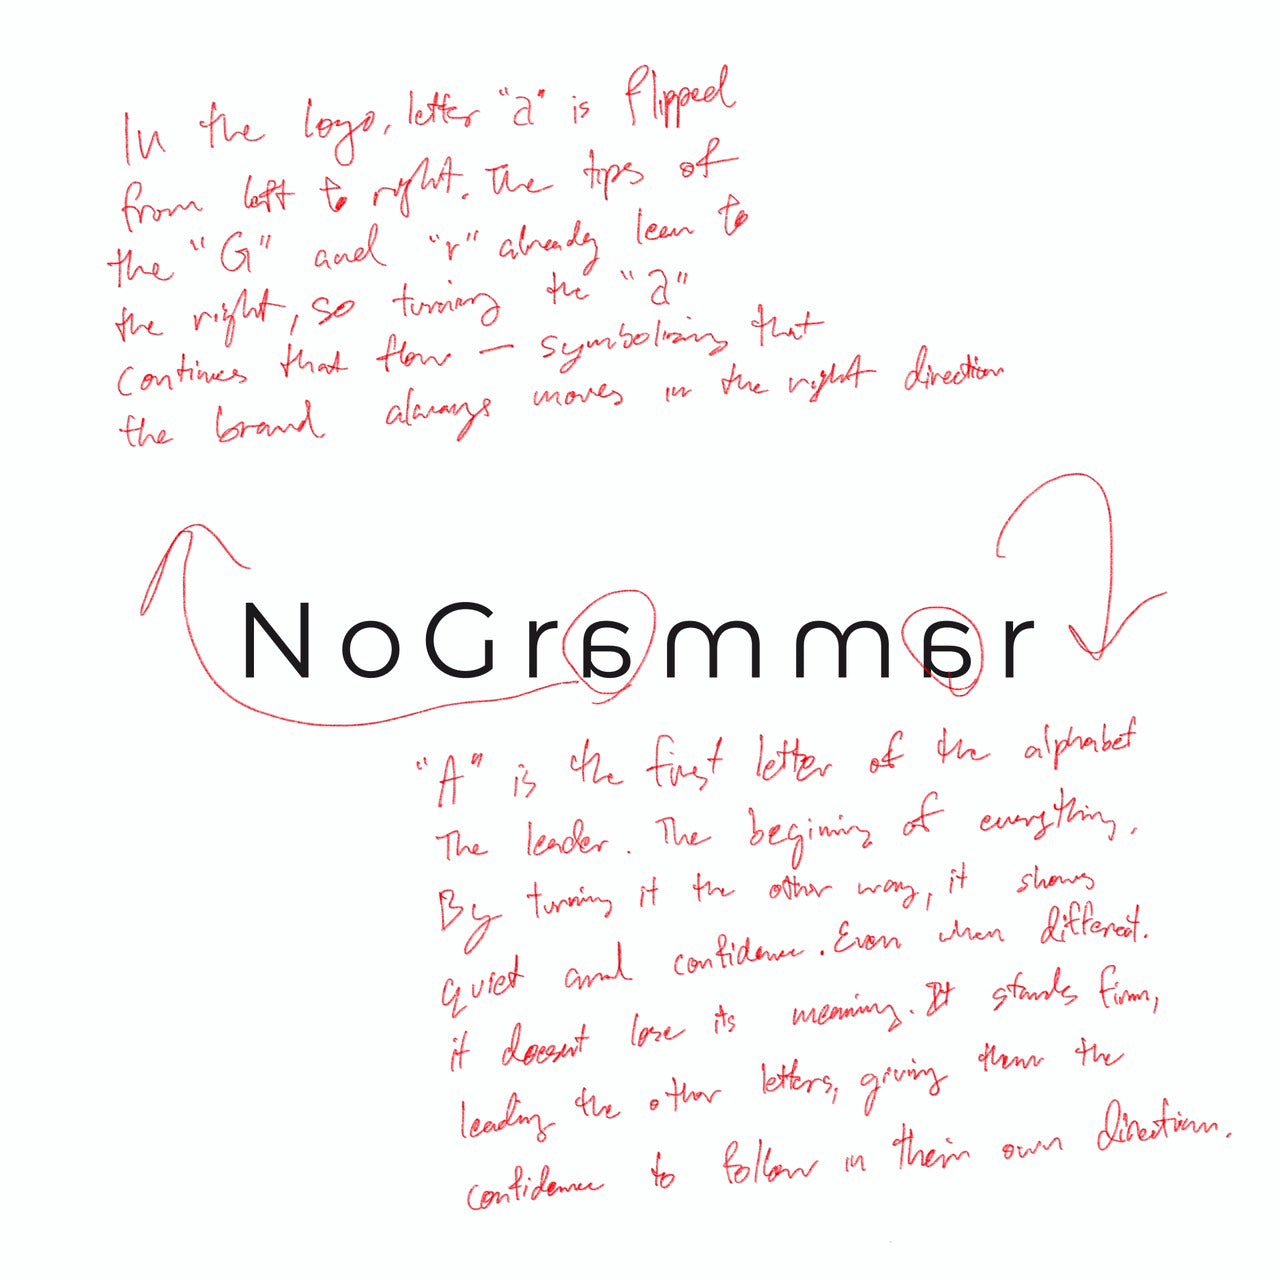 In the logo, letter "a" is flipped
from left to right. The tips of
the "G" and "r" already lean to
the right, so turning the "a"
continues that flow — symbolizing that
the brand always moves in the right direction
NoGrammar
"A" is the first letter of the alphabet
The leader. The begining of everything.
By turning it the other way, it shows
quiet and confidence. Even when different.
it doesnt lose its meaning. It stands firm,
leading the other letters, giving them the
confidence to follow in their own direction.